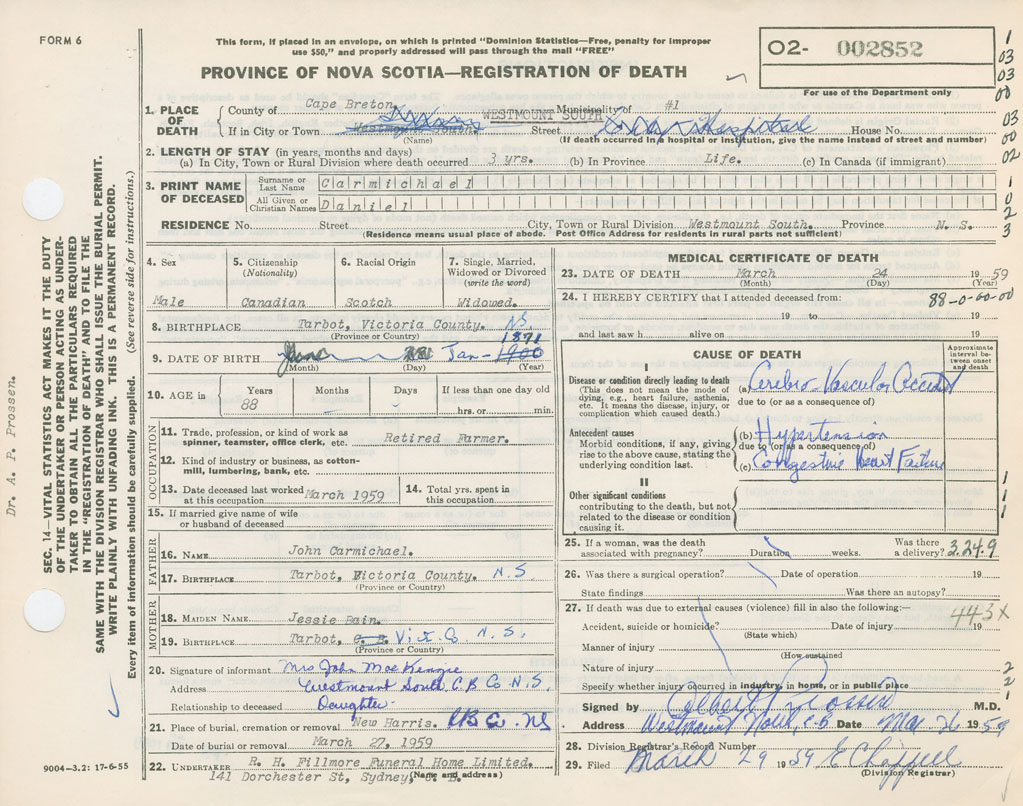 FORM 6
This form, if placed in an envelope, on which is printed "Dominion Statistics—Free, penalty for improper
use $50," and properly addressed will pass through the mail "FREE"
O2- 002852
For use of the Department only
PROVINCE OF NOVA SCOTIA—REGISTRATION OF DEATH
1. PLACE OF DEATH
County of Cape Breton Municipality of #1
WESTMOUNT SOUTH
If in City or Town Westmount South. Street Hospital House No.
(Name) (If death occurred in a hospital or institution, give the name instead of street and number)
2. LENGTH OF STAY (in years, months and days)
(a) In City, Town or Rural Division where death occurred 3 yrs. (b) In Province Life. (c) In Canada (if immigrant)
3. PRINT NAME OF DECEASED
Surname or Last Name Carmichael
All Given or Christian Names Daniel
RESIDENCE No. Street City, Town or Rural Division Westmount South. Province N. S.
(Residence means usual place of abode. Post Office Address for residents in rural parts not sufficient)
4. Sex Male
5. Citizenship (Nationality) Canadian
6. Racial Origin Scotch
7. Single, Married, Widowed or Divorced (write the word) Widowed.
8. BIRTHPLACE Tarbot, Victoria County. N.S.
(Province or Country)
1871
9. DATE OF BIRTH 28 Jan - 1900
(Month) (Day) (Year)
10. AGE in Years 88 Months Days If less than one day old hrs. or min.
OCCUPATION
11. Trade, profession, or kind of work as spinner, teamster, office clerk, etc. Retired Farmer.
12. Kind of industry or business, as cotton-mill, lumbering, bank, etc.
13. Date deceased last worked at this occupation March 1959
14. Total yrs. spent in this occupation
15. If married give name of wife or husband of deceased
FATHER
16. NAME John Carmichael.
17. BIRTHPLACE Tarbot, Victoria County. N.S
(Province or Country)
MOTHER
18. MAIDEN NAME Jessie Bain.
19. BIRTHPLACE Tarbot, C. B. Vict. Co N.S.
(Province or Country)
20. Signature of informant Mrs John MacKenzie
Address Westmount South, C.B Co N.S.
Relationship to deceased Daughter
21. Place of burial, cremation or removal New Harris. C B Co - NS
Date of burial or removal March 27, 1959
22. UNDERTAKER R. H. Fillmore Funeral Home Limited.
141 Dorchester St, Sydney, C. B.
(Name and address)
9004—3.2: 17-6-55
MEDICAL CERTIFICATE OF DEATH
23. DATE OF DEATH March 24 1959
(Month) (Day) (Year)
24. I HEREBY CERTIFY that I attended deceased from: 88-0-00-00
19 to 19
and last saw h alive on 19
CAUSE OF DEATH
Approximate interval between onset and death
I
Disease or condition directly leading to death
(This does not mean the mode of dying, e.g., heart failure, asthenia, etc. It means the disease, injury, or complication which caused death.)
(a) Cerebro Vascular Accident
due to (or as a consequence of)
Antecedent causes
Morbid conditions, if any, giving rise to the above cause, stating the underlying condition last.
(b) Hypertension
due to (or as a consequence of)
(c) Congestive Heart Failure
II
Other significant conditions
contributing to the death, but not related to the disease or condition causing it.
25. If a woman, was the death associated with pregnancy? Duration weeks. Was there a delivery? 3.24.9
26. Was there a surgical operation? Date of operation 19
State findings Was there an autopsy?
27. If death was due to external causes (violence) fill in also the following:— 443X
Accident, suicide or homicide? Date of injury 19
(State which)
Manner of injury
(How sustained
Nature of injury
Specify whether injury occurred in industry, in home, or in public place
Signed by M.D.
Address Westmount North, C.B Date Mar 26 1959
28. Division Registrar's Record Number
29. Filed March 29 1959 E Chappell
(Division Registrar)
Dr. A. P. Prossen.
SEC. 14—VITAL STATISTICS ACT MAKES IT THE DUTY
OF THE UNDERTAKER OR PERSON ACTING AS UNDER-
TAKER TO OBTAIN ALL THE PARTICULARS REQUIRED
IN THE "REGISTRATION OF DEATH" AND TO FILE THE
SAME WITH THE DIVISION REGISTRAR WHO SHALL ISSUE THE BURIAL PERMIT.
WRITE PLAINLY WITH UNFADING INK. THIS IS A PERMANENT RECORD.
Every item of information should be carefully supplied. (See reverse side for instructions.)
1
03
03
00
03
00
02
1
0
2
3
1
1
1
2
2
1